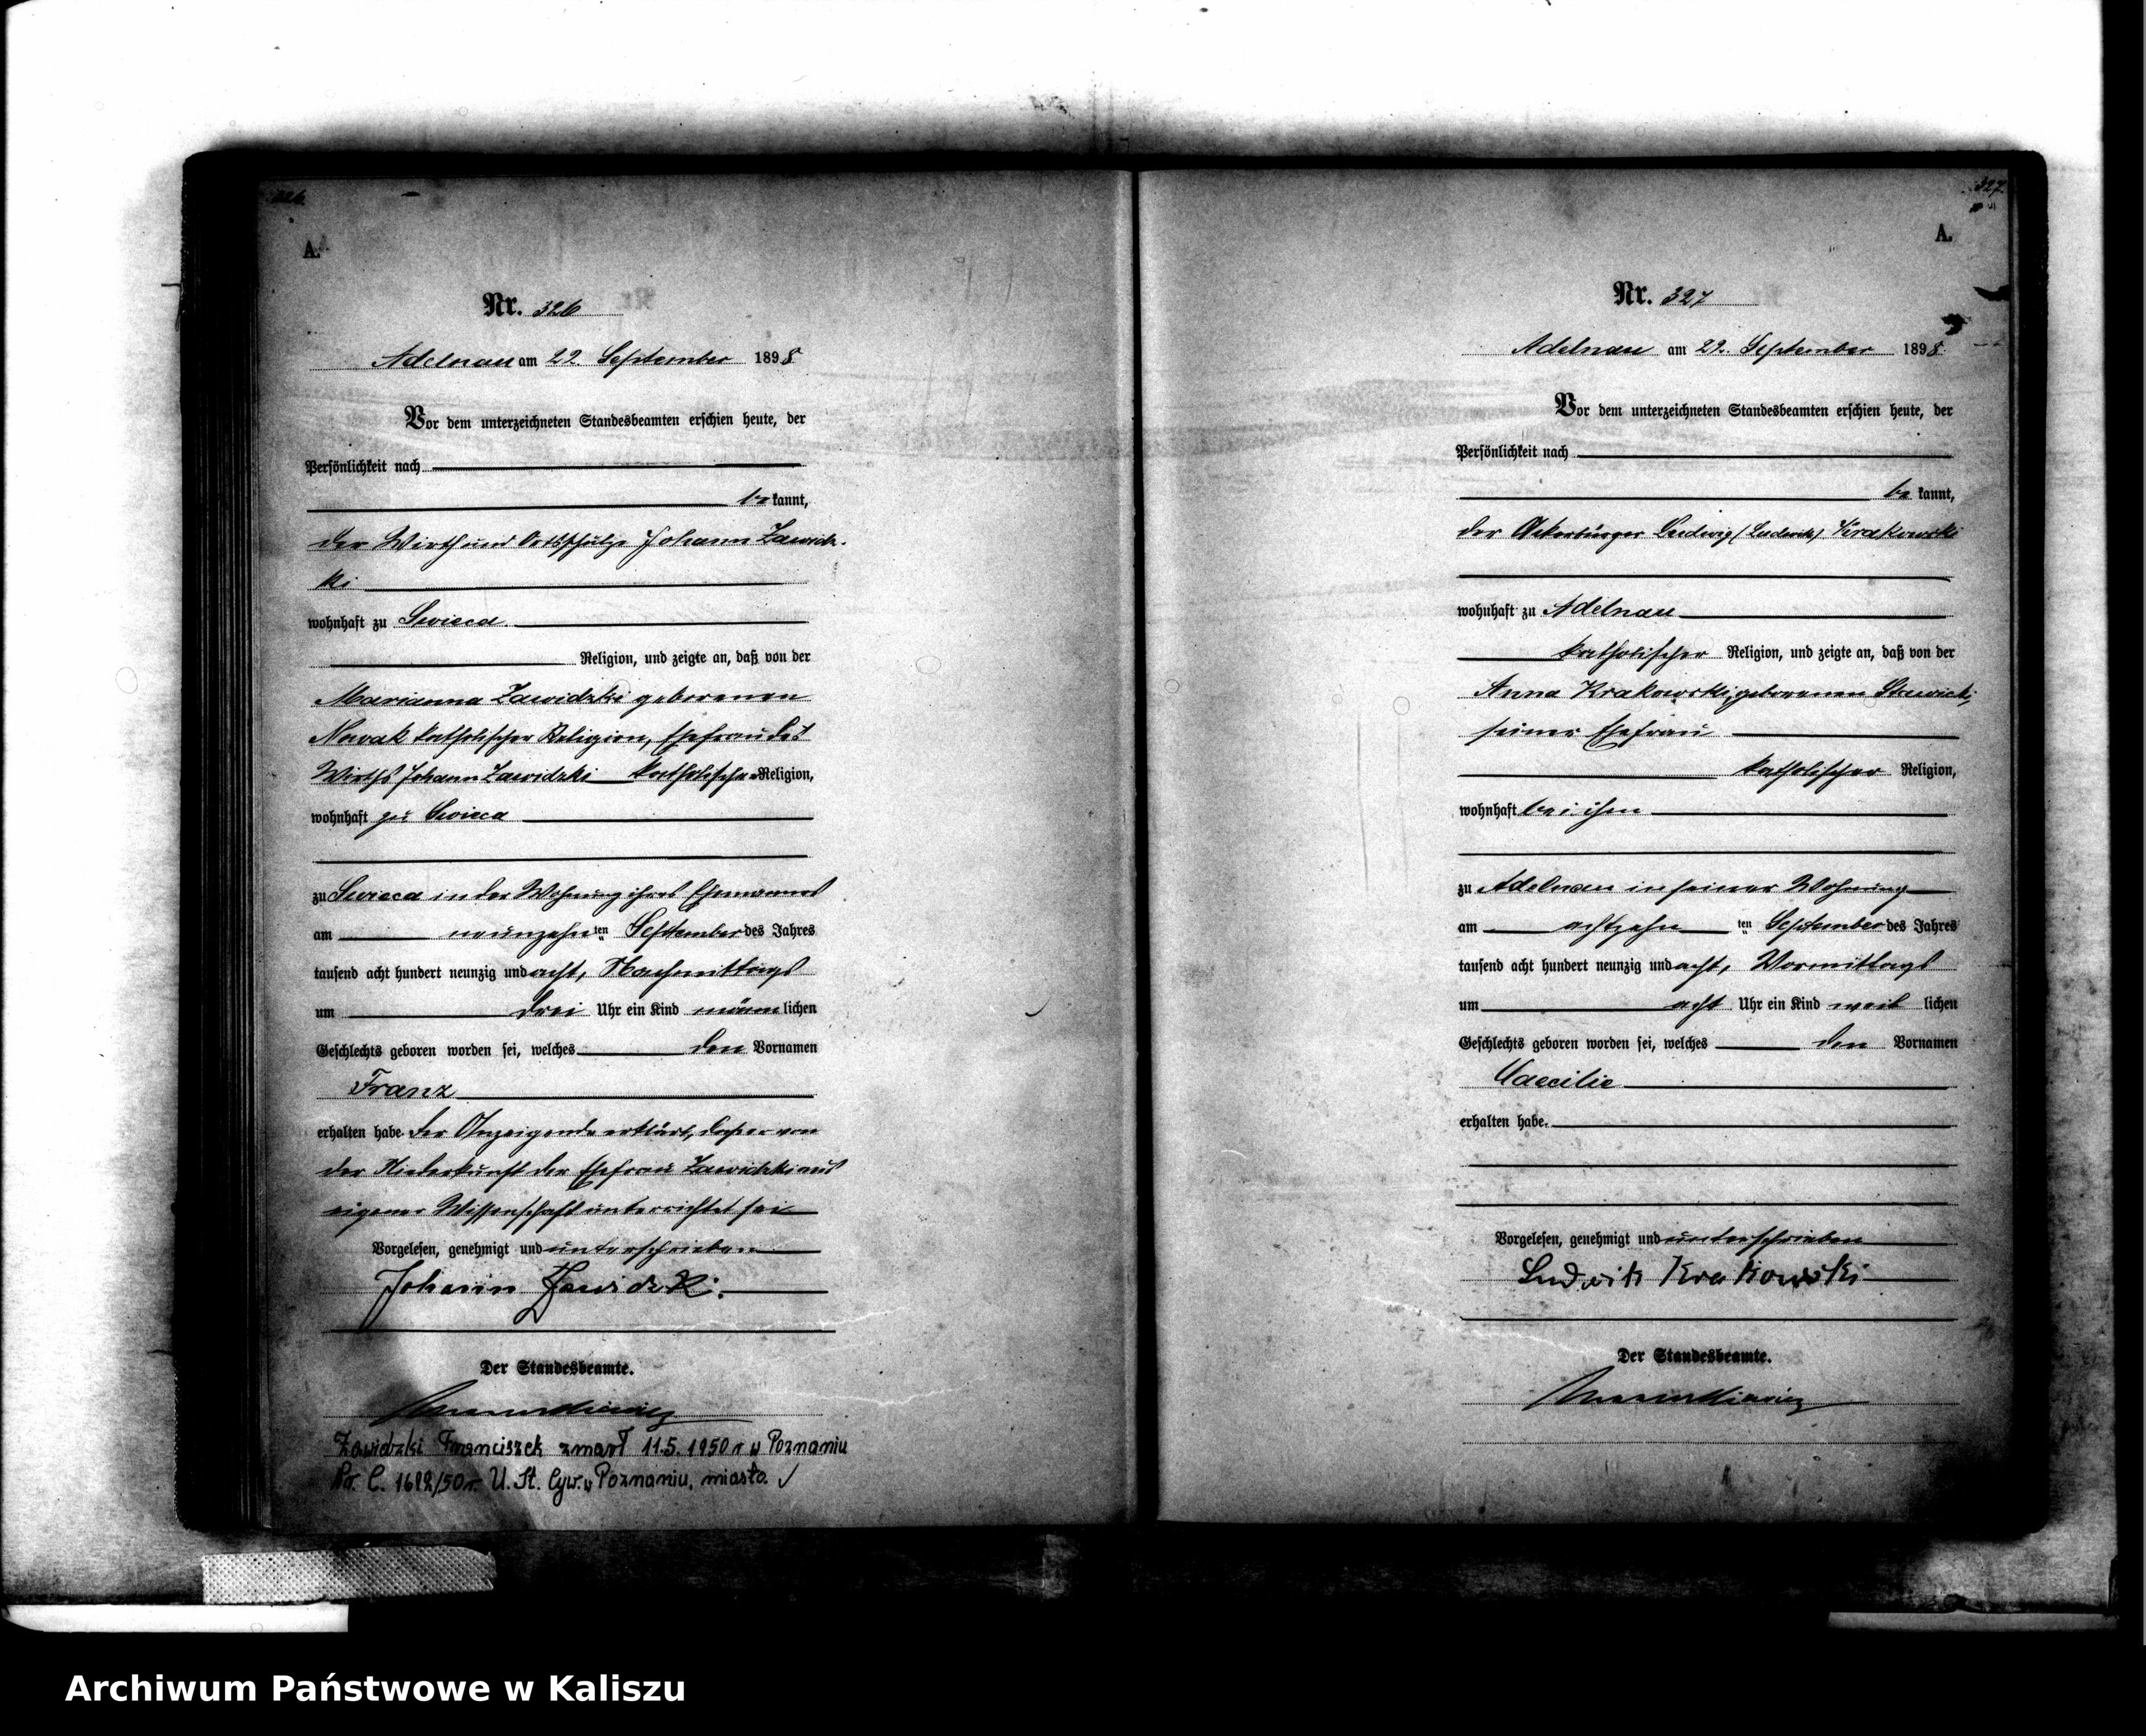 326.
A.
Nr. 326
Adelnau am 22. September 1898.
Vor dem unterzeichneten Standesbeamten erschien heute, der
Persönlichkeit nach
be kannt,
der Wirth und Ortsschulze Johann Zawidz-
ki
wohnhaft zu Swieca.
Religion, und zeigte an, daß von der
Marianna Zawidzki geborenen
Nowak katholischer Religion, Ehefrau des
Wirths Johann Zawidzki katholischer Religion,
wohnhaft zu Swieca
zu Swieca in der Wohnung ihres Ehemannes
am neunzehn ten September des Jahres
tausend acht hundert neunzig und acht, Nachmittags
um drei Uhr ein Kind männ lichen
Geschlechts geboren worden sei, welches den Vornamen
Franz
erhalten habe. Der Anzeigende erklärt, daß er von
der Niederkunft der Ehefrau Zawidzki aus
eigener Wissenschaft unterrichtet sei
Vorgelesen, genehmigt und unterschrieben
Johann Zawidzki
Der Standesbeamte.
Zawidzki Franciszek zmarł 11.5.1950 r w Poznaniu
U. St. Cyw. w Poznaniu, miasto.
327.
A.
Nr. 327
Adelnau am 22. September 1898.
Vor dem unterzeichneten Standesbeamten erschien heute, der
Persönlichkeit nach
be kannt,
der Ackerbürger Ludwig (Ludwik) Krakowski
wohnhaft zu Adelnau
katholischer Religion, und zeigte an, daß von der
Anna Krakowski, geborenen Stawicki,
seiner Ehefrau
katholischer Religion,
wohnhaft bei ihm
zu Adelnau in seiner Wohnung
am achtzehn ten September des Jahres
tausend acht hundert neunzig und acht, Vormittags
um acht Uhr ein Kind weib lichen
Geschlechts geboren worden sei, welches den Vornamen
Caecilie
erhalten habe.
Vorgelesen, genehmigt und unterschrieben
Ludwik Krakowski
Der Standesbeamte.
Archiwum Państwowe w Kaliszu